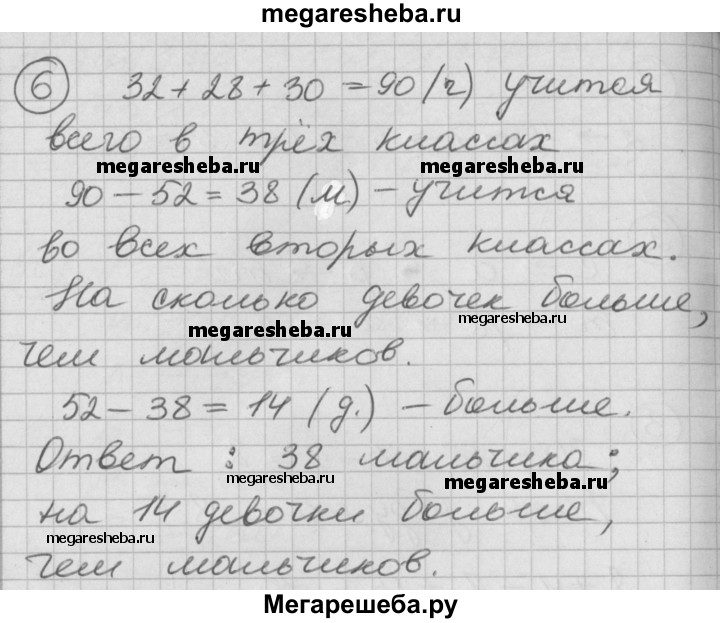 megaresheba.ru
6 32 + 28 + 30 = 90 (ч) учится
всего в трёх классах
megaresheba.ru megaresheba.ru
90 – 52 = 38 (м) – учится
во всех вторых классах.
На сколько девочек больше,
megaresheba.ru megaresheba.ru
чем мальчиков.
52 – 38 = 14 (д.) – больше.
Ответ : 38 мальчика;
megaresheba.ru megaresheba.ru
на 14 девочки больше,
megaresheba.ru
чем мальчиков.
Мегарешеба.ру